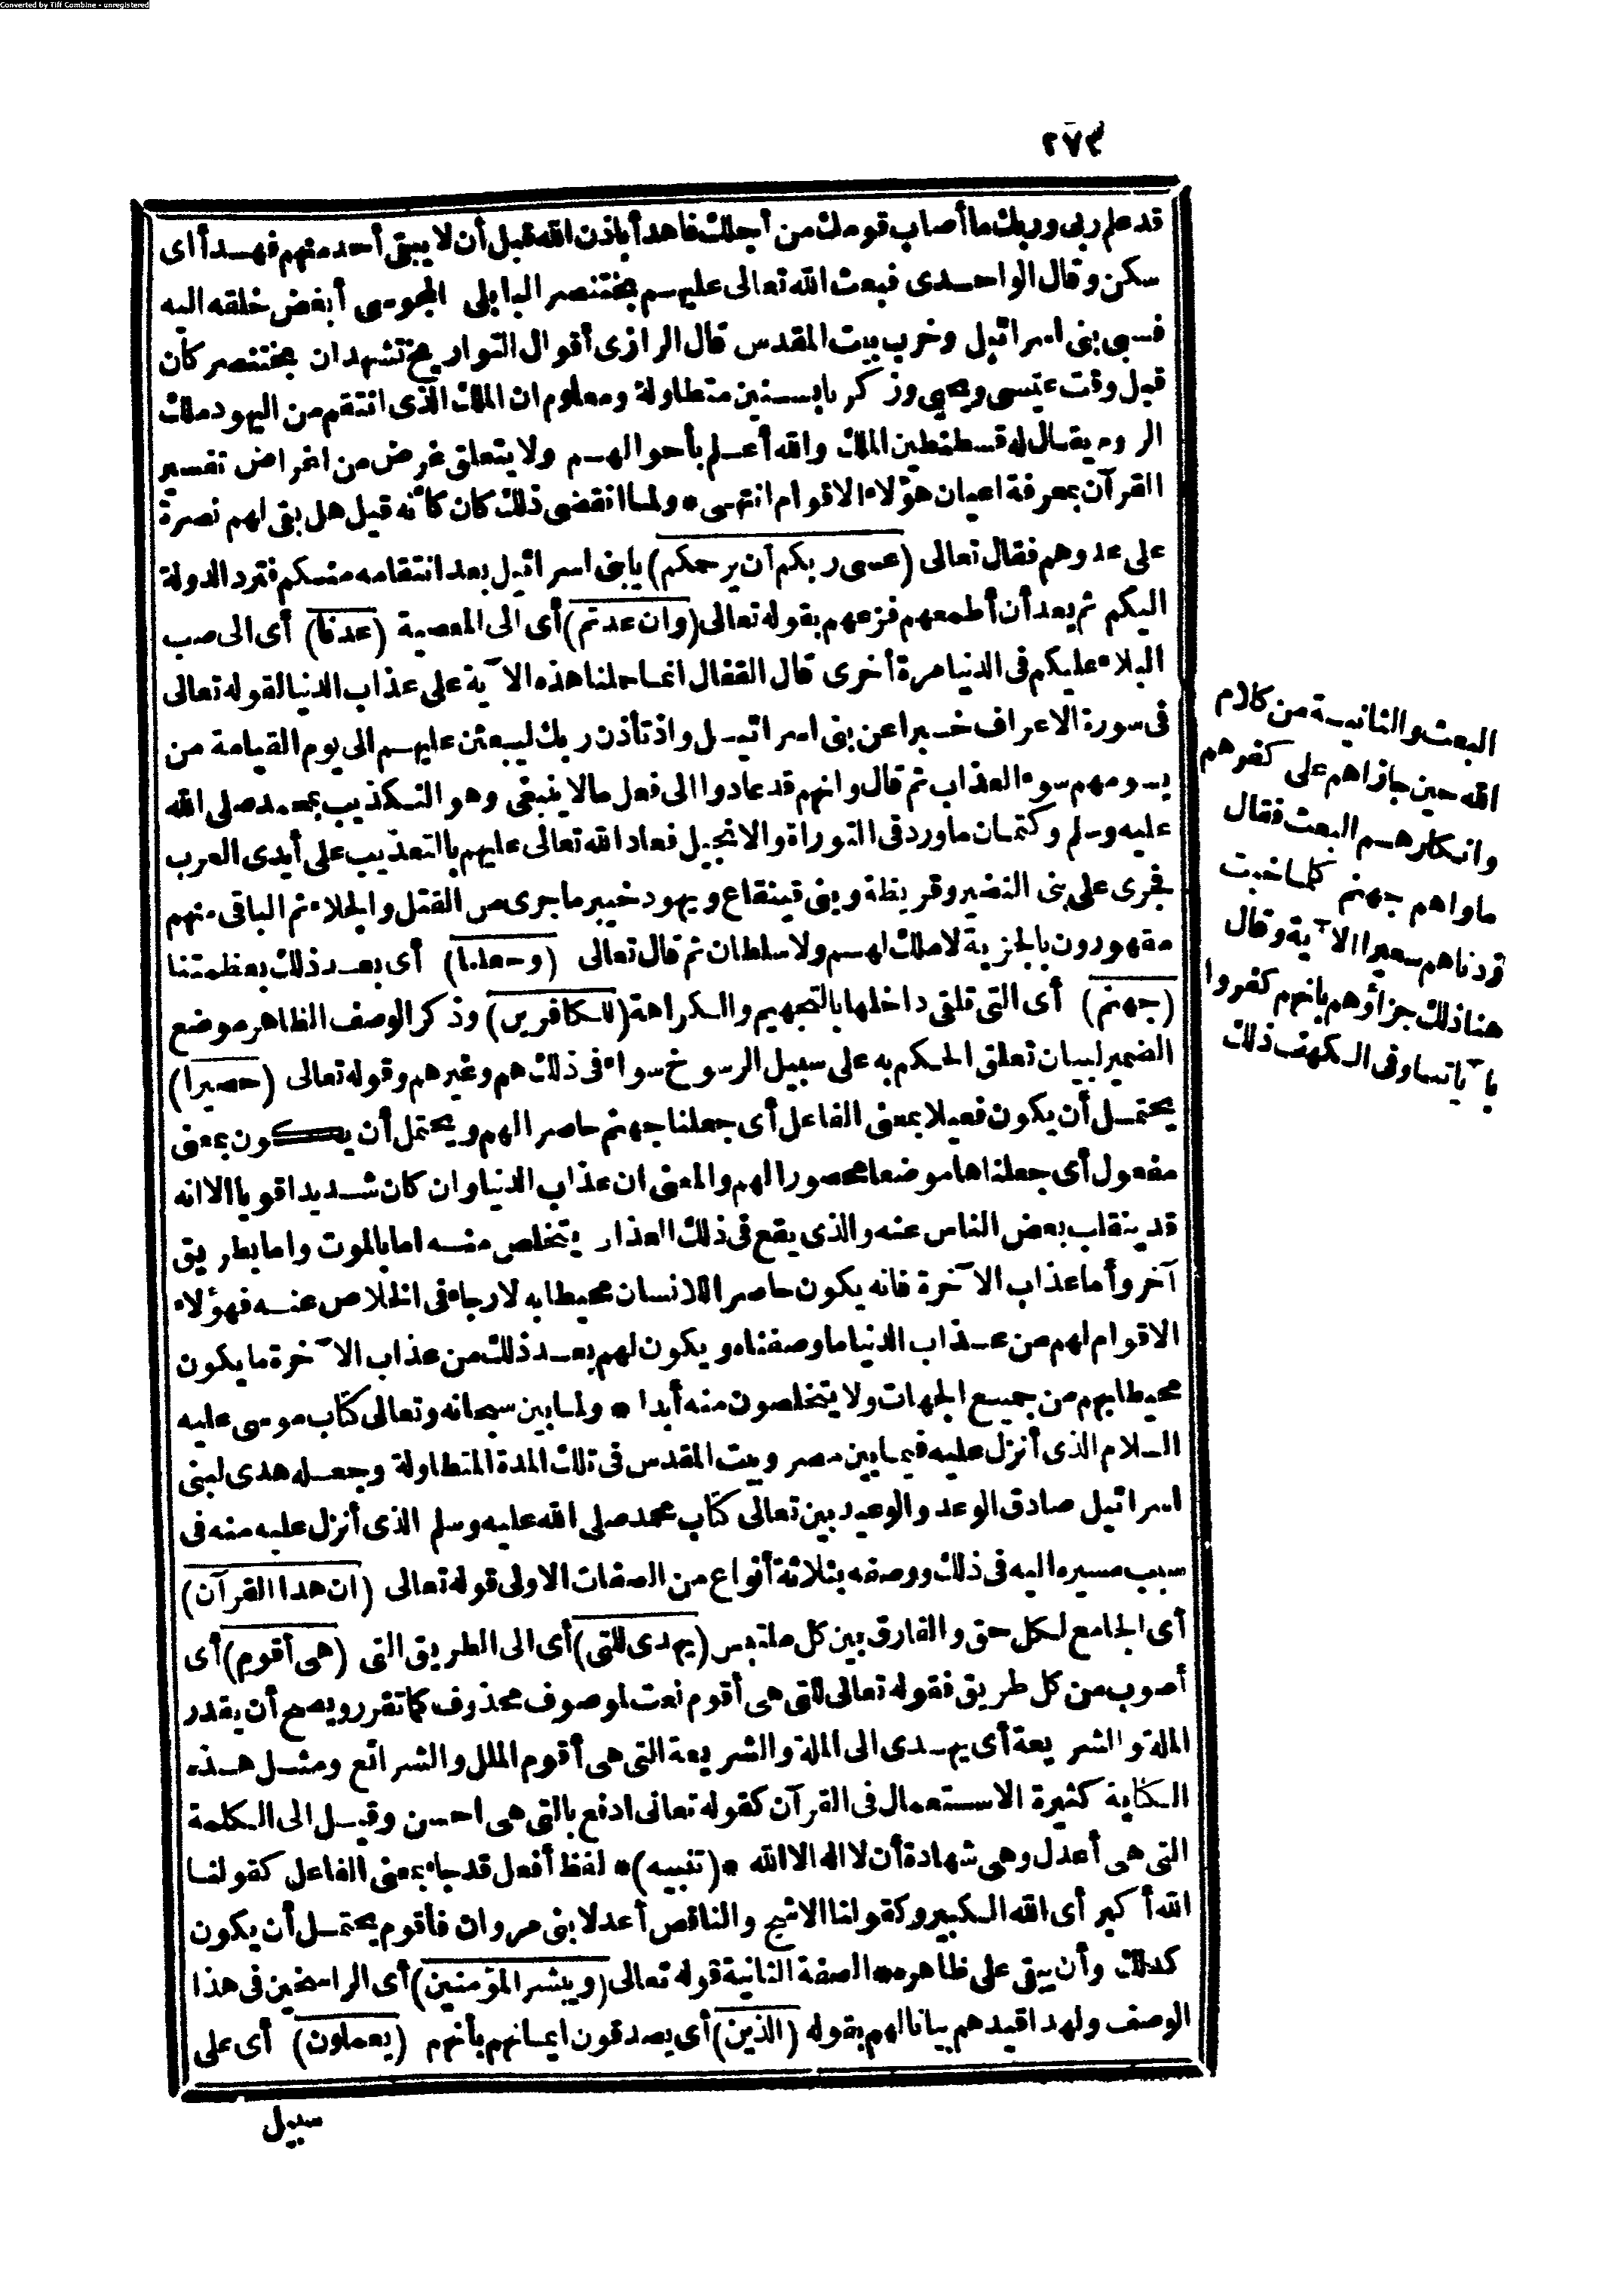 Converted by Tiff Combine - unregistered
٢٧٣
قد علم ربى وربك ما أصاب قومك من أجلك فاهدأ باذن الله قبل أن لا يبقى أحد منهم فهدأ أى
سكن وقال الواحدى فبعث الله تعالى عليهم بختنصر البابلى المجوسى أبغض خلقه اليه
فسبى بنى اسرائيل وخرب بيت المقدس قال الرازى أقوال التواريخ تشهد ان بختنصر كان
قبل وقت عيسى ويحيى وزكريا بسنين متطاولة ومعلوم ان الملك الذى انتقم من اليهود ملك
الروم يقال له قسطنطين الملك والله أعلم بأحوالهم ولا يتعلق غرض من اغراض تفسير
القرآن بمعرفة اعيان هؤلاء الاقوام انتهى * ولما انقضى ذلك كان كأنه قيل هل بقى لهم نصرة
على عدوهم فقال تعالى (عسى ربكم أن يرحمكم) يابنى اسرائيل بعد انتقامه منكم فترد الدولة
اليكم ثم بعد أن أطمعهم فزعهم بقوله تعالى (وان عدتم) أى الى المعصية (عدنا) أى الى صب
البلاء عليكم فى الدنيا مرة أخرى قال القفال انما حملنا هذه الآية على عذاب الدنيا لقوله تعالى
فى سورة الاعراف خبرا عن بنى اسرائيل واذ تأذن ربك ليبعثن عليهم الى يوم القيامة من
يسومهم سوء العذاب ثم قال وانهم قد عادوا الى فعل مالا ينبغى وهو التكذيب بمحمد صلى الله
عليه وسلم وكتمان ماورد فى التوراة والانجيل فعاد الله تعالى عليهم بالتعذيب على أيدى العرب
فجرى على بنى النضير وقريظة وبنى قينقاع ويهود خيبر ماجرى من القتل والجلاء ثم الباقى منهم
مقهورون بالجزية لا ملك لهم ولا سلطان ثم قال تعالى (وجعلنا) أى بعد ذلك بعظمتنا
(جهنم) أى التى تلقى داخلها بالتجهيم والكراهة (للكافرين) وذكر الوصف الظاهر موضع
الضمير لبيان تعلق الحكم به على سبيل الرسوخ سواء فى ذلك هم وغيرهم وقوله تعالى (حصيرا)
يحتمل أن يكون فعيلا بمعنى الفاعل أى جعلنا جهنم حاصرا لهم ويحتمل أن يكون بمعنى
مفعول أى جعلناها موضعا محصورا لهم والمعنى ان عذاب الدنيا وان كان شديدا قويا الا انه
قد ينقلب بعض الناس عنه والذى يقع فى ذلك العذاب يتخلص منه اما بالموت واما بطريق
آخر وأما عذاب الآخرة فانه يكون حاصرا للانسان محيطا به لارجاء فى الخلاص عنه فهؤلاء
الاقوام لهم من عذاب الدنيا ما وصفناه ويكون لهم بعد ذلك من عذاب الآخرة ما يكون
محيطا بهم من جميع الجهات ولا يتخلصون منه أبدا * ولما بين سبحانه وتعالى كتاب موسى عليه
السلام الذى أنزل عليه فيما بين مصر وبيت المقدس فى تلك المدة المتطاولة وجعله هدى لبنى
اسرائيل صادق الوعد والوعيد بين تعالى كتاب محمد صلى الله عليه وسلم الذى أنزل عليه منه فى
سبب مسيره اليه فى ذلك ووصفه بثلاثة أنواع من الصفات الاولى قوله تعالى (ان هذا القرآن)
أى الجامع لكل حق والفارق بين كل ملتبس (يهدى للتى) أى الى الطريق التى (هى أقوم) أى
أصوب من كل طريق فقوله تعالى للتى هى أقوم نعت لموصوف محذوف كما تقرر ويصح أن يقدر
الملة والشريعة أى يهدى الى الملة والشريعة التى هى أقوم الملل والشرائع ومثل هذه
الكناية كثيرة الاستعمال فى القرآن كقوله تعالى ادفع بالتى هى احسن وقيل الى الكلمة
التى هى أعدل وهى شهادة أن لا اله الا الله *(تنبيه)* لفظ أفعل قد جاء بمعنى الفاعل كقولنا
الله أكبر أى الله الكبير وكقولنا الاشج والناقص أعدلا بنى مروان فأقوم يحتمل أن يكون
كذلك وأن يبقى على ظاهره * الصفة الثانية قوله تعالى (ويبشر المؤمنين) أى الراسخين فى هذا
الوصف ولهذا قيدهم بيانا لهم بقوله (الذين) أى يصدقون ايمانهم بأنهم (يعملون) أى على
سبيل
البعث والثانية من كلام
الله حين جازاهم على كفرهم
وانكارهم البعث فقال
ماواهم جهنم كلما خبت
زدناهم سعيرا الآية وقال
هنا ذلك جزاؤهم بانهم كفروا
بآياتنا وفى الكهف ذلك